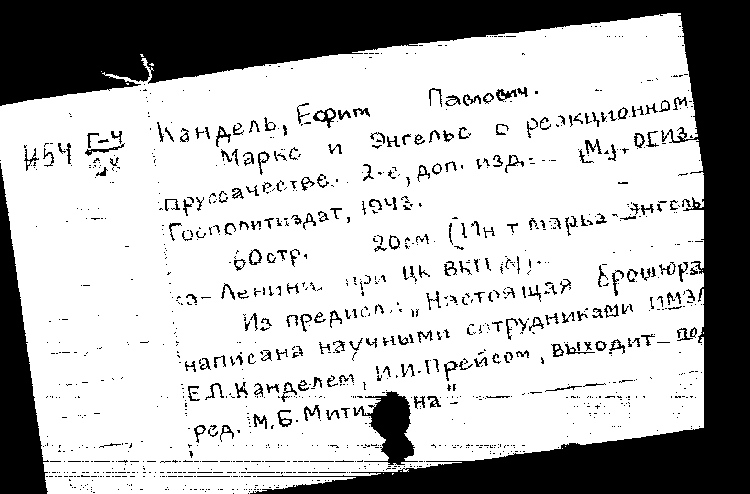 Кандель, Ефим Павлович.
И54 Г-4
28
Маркс и Энгельс о реакционном
пруссачестве. 2-е, доп. изд. [М.], ОГИЗ.
Госполитиздат, 1943.
60стр. 20см. (Ин-т Маркса-Энгель
са-Ленина при ЦК ВКП(б)).
Из предисл.: „Настоящая брошюра
написана научными сотрудниками ИМЭЛ
Е.П.Канделем, И.И.Прейсом, выходит под
ред. М.Б.Мити на"